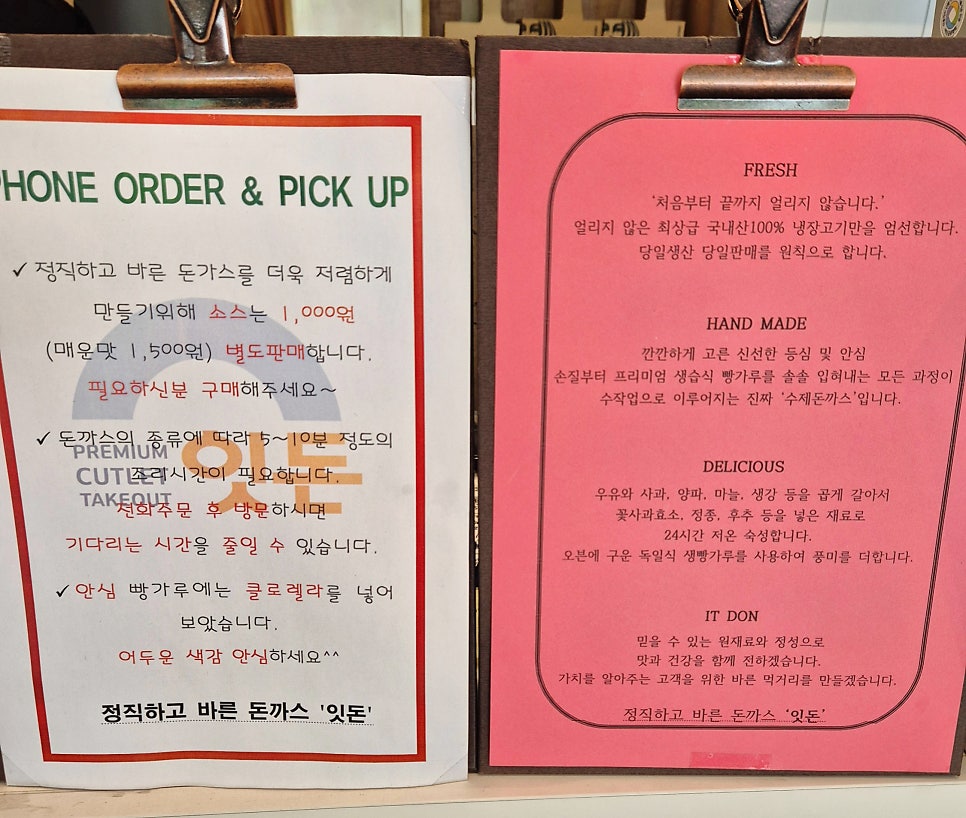 PHONE ORDER & PICK UP
✓ 정직하고 바른 돈가스를 더욱 저렴하게
만들기위해 소스는 1,000원
(매운맛 1,500원) 별도판매합니다.
필요하신분 구매해주세요~
✓ 돈까스의 종류에 따라 5~10분 정도의
조리시간이 필요합니다.
전화주문 후 방문하시면
기다리는 시간을 줄일 수 있습니다.
✓ 안심 빵가루에는 클로렐라를 넣어
보았습니다.
어두운 색감 안심하세요^^
정직하고 바른 돈까스 '잇돈'
PREMIUM
CUTLET
TAKEOUT
잇돈
FRESH
'처음부터 끝까지 얼리지 않습니다.'
얼리지 않은 최상급 국내산100% 냉장고기만을 엄선합니다.
당일생산 당일판매를 원칙으로 합니다.
HAND MADE
깐깐하게 고른 신선한 등심 및 안심
손질부터 프리미엄 생습식 빵가루를 솔솔 입혀내는 모든 과정이
수작업으로 이루어지는 진짜 '수제돈까스'입니다.
DELICIOUS
우유와 사과, 양파, 마늘, 생강 등을 곱게 갈아서
꽃사과효소, 정종, 후추 등을 넣은 재료로
24시간 저온 숙성합니다.
오븐에 구운 독일식 생빵가루를 사용하여 풍미를 더합니다.
IT DON
믿을 수 있는 원재료와 정성으로
맛과 건강을 함께 전하겠습니다.
가치를 알아주는 고객을 위한 바른 먹거리를 만들겠습니다.
정직하고 바른 돈까스 '잇돈'